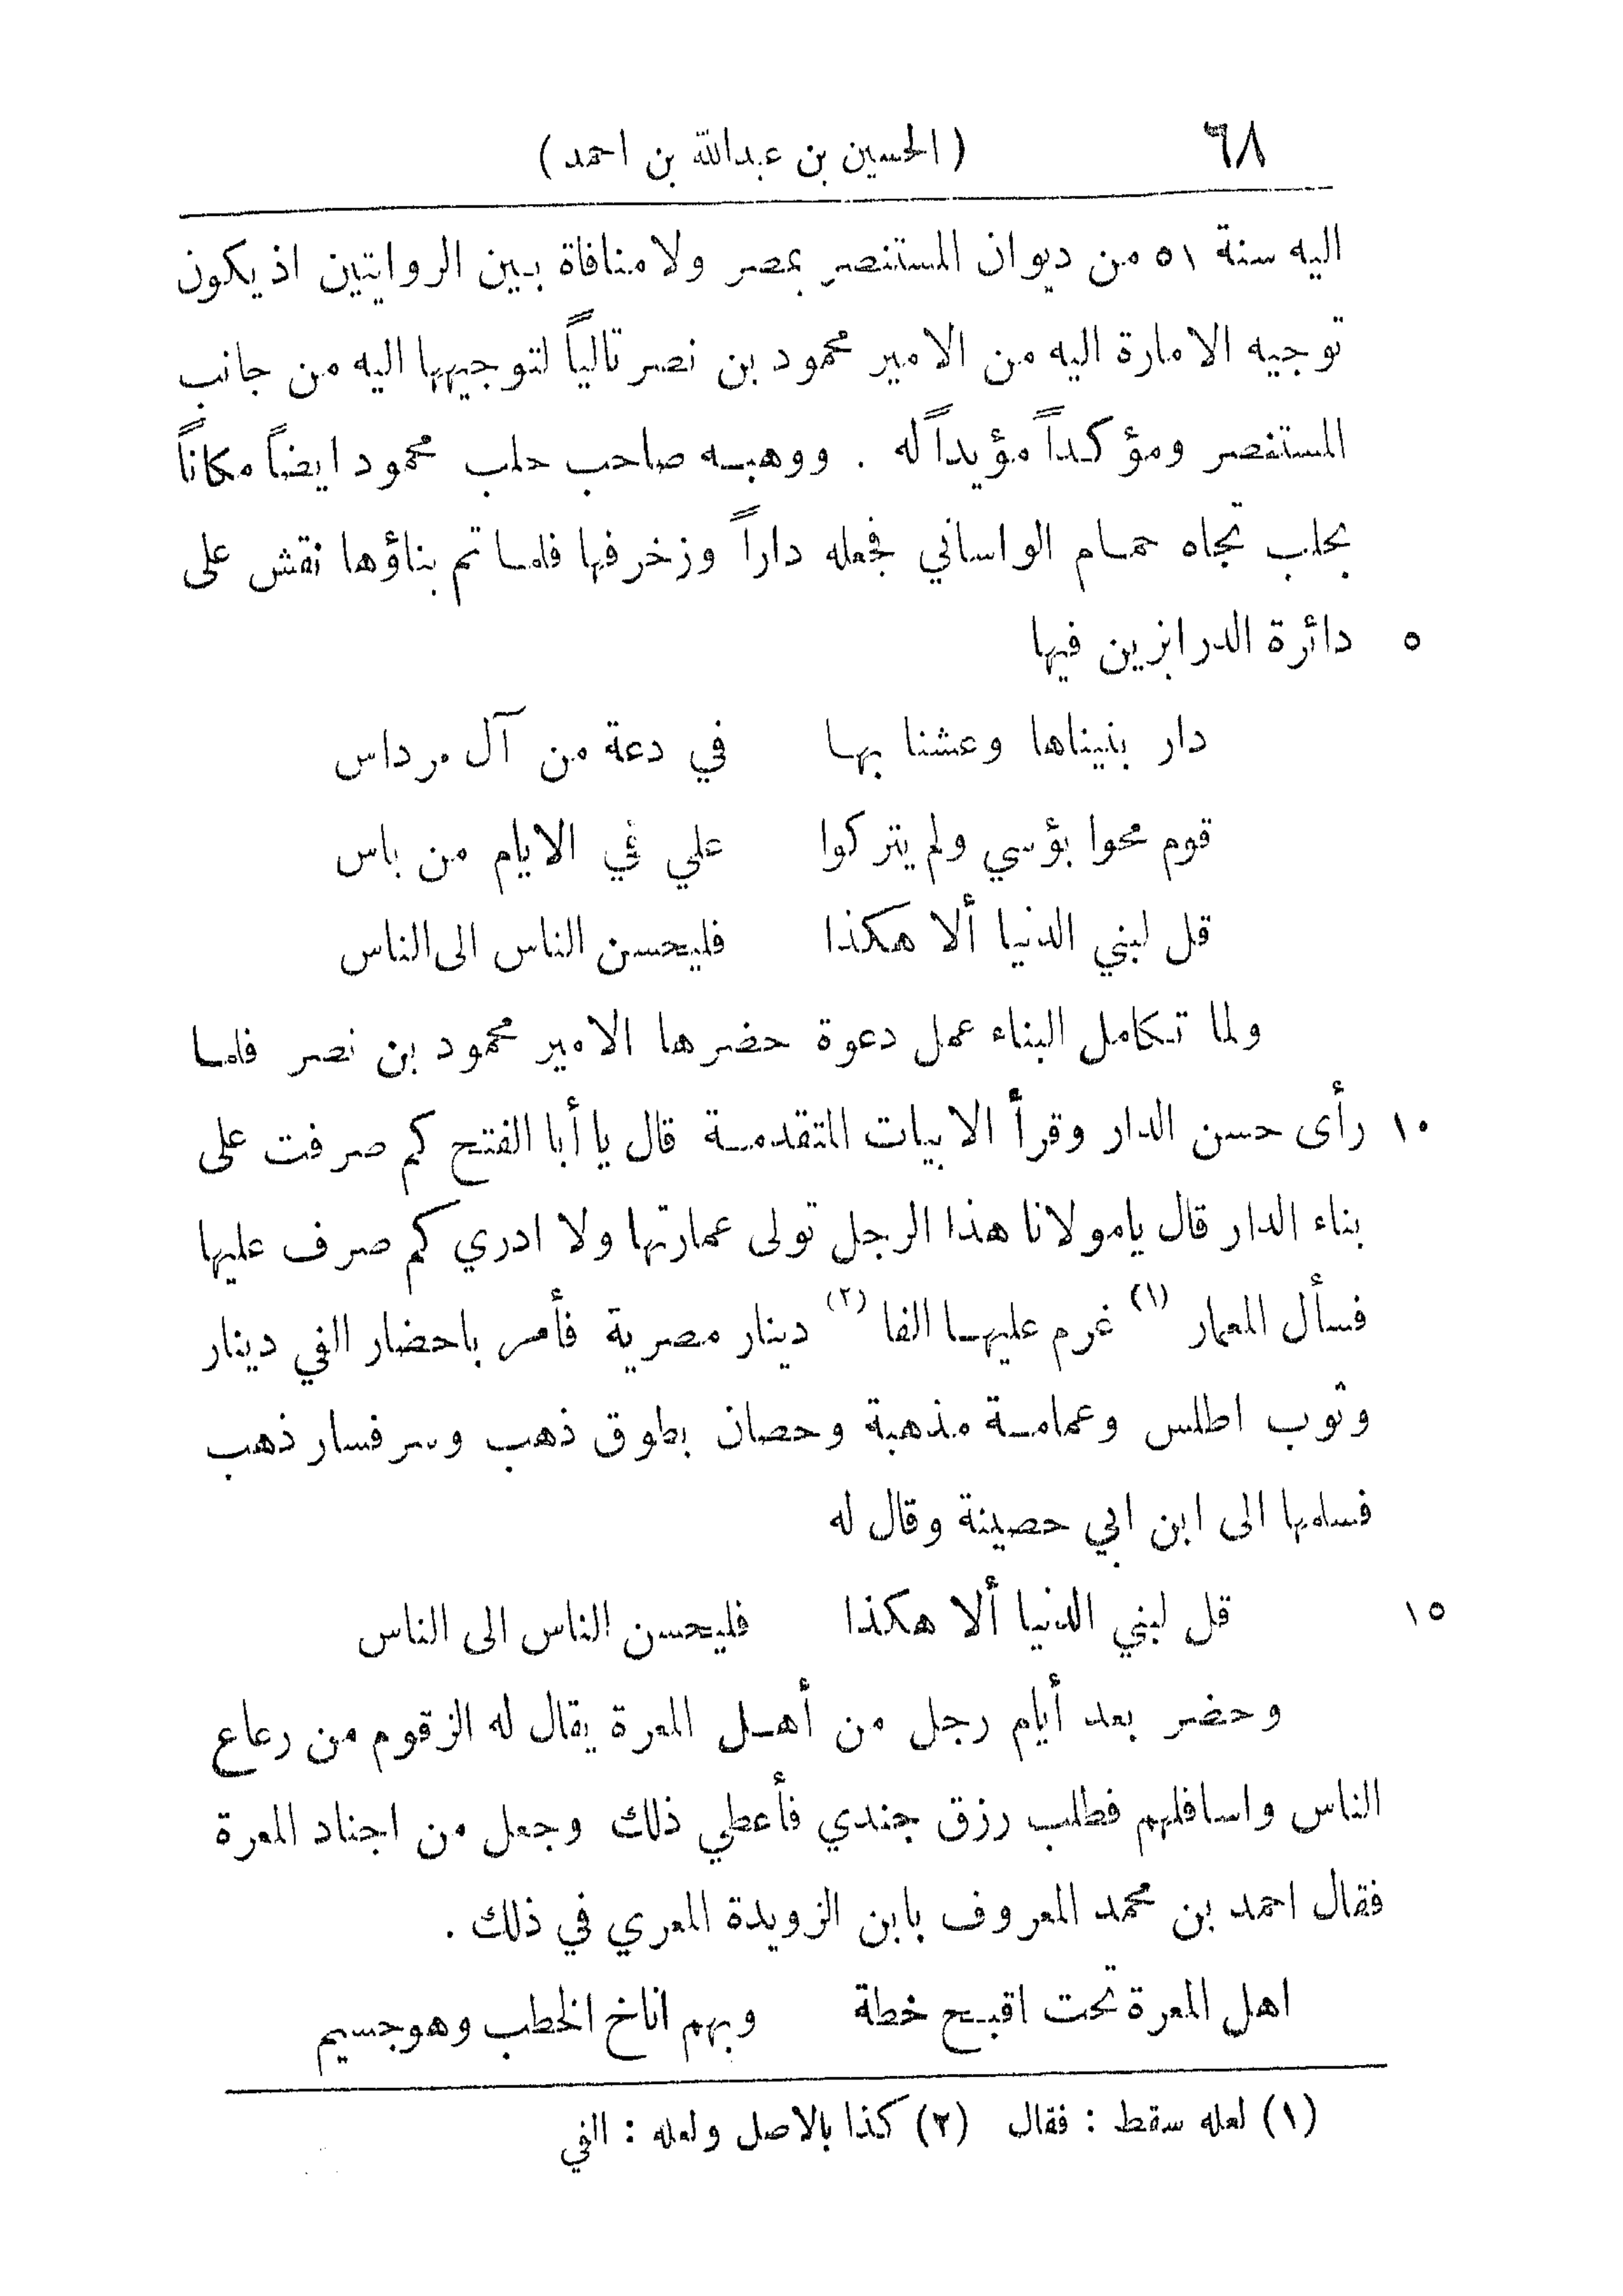 ٦٨ (الحسين بن عبدالله بن احمد)
اليه سنة ٥١ من ديوان المستنصر بمصر ولا منافاة بين الروايتين اذ يكون
توجيه الامارة اليه من الامير محمود بن نصر تالياً لتوجيهها اليه من جانب
المستنصر ومؤكداً مؤيداً له . ووهبه صاحب حلب محمود ايضاً مكاناً
بحلب تجاه حمام الواساني فجعله داراً وزخرفها فلما تم بناؤها نقش على
٥ دائرة الدرابزين فيها
دار بنيناها وعشنا بها في دعة من آل مرداس
قوم محوا بؤسي ولم يتركوا علي في الايام من باس
قل لبني الدنيا ألا هكذا فليحسن الناس الى الناس
ولما تكامل البناء عمل دعوة حضرها الامير محمود بن نصر فلما
١٠ رأى حسن الدار وقرأ الابيات المتقدمة قال يا أبا الفتح كم صرفت على
بناء الدار قال يامولانا هذا الرجل تولى عمارتها ولا ادري كم صرف عليها
فسأل المعمار (١) غرم عليها الفا (٢) دينار مصرية فأمر باحضار الفي دينار
وثوب اطلس وعمامة مذهبة وحصان بطوق ذهب وسرفسار ذهب
فسلمها الى ابن ابي حصينة وقال له
١٥ قل لبني الدنيا ألا هكذا فليحسن الناس الى الناس
وحضر بعد أيام رجل من أهل المعرة يقال له الزقوم من رعاع
الناس واسافلهم فطلب رزق جندي فأعطي ذلك وجعل من اجناد المعرة
فقال احمد بن محمد المعروف بابن الزويدة المعري في ذلك .
اهل المعرة تحت اقبح خطة وبهم اناخ الخطب وهو جسيم
(١) لعله سقط : فقال (٢) كذا بالاصل ولعله : الفي